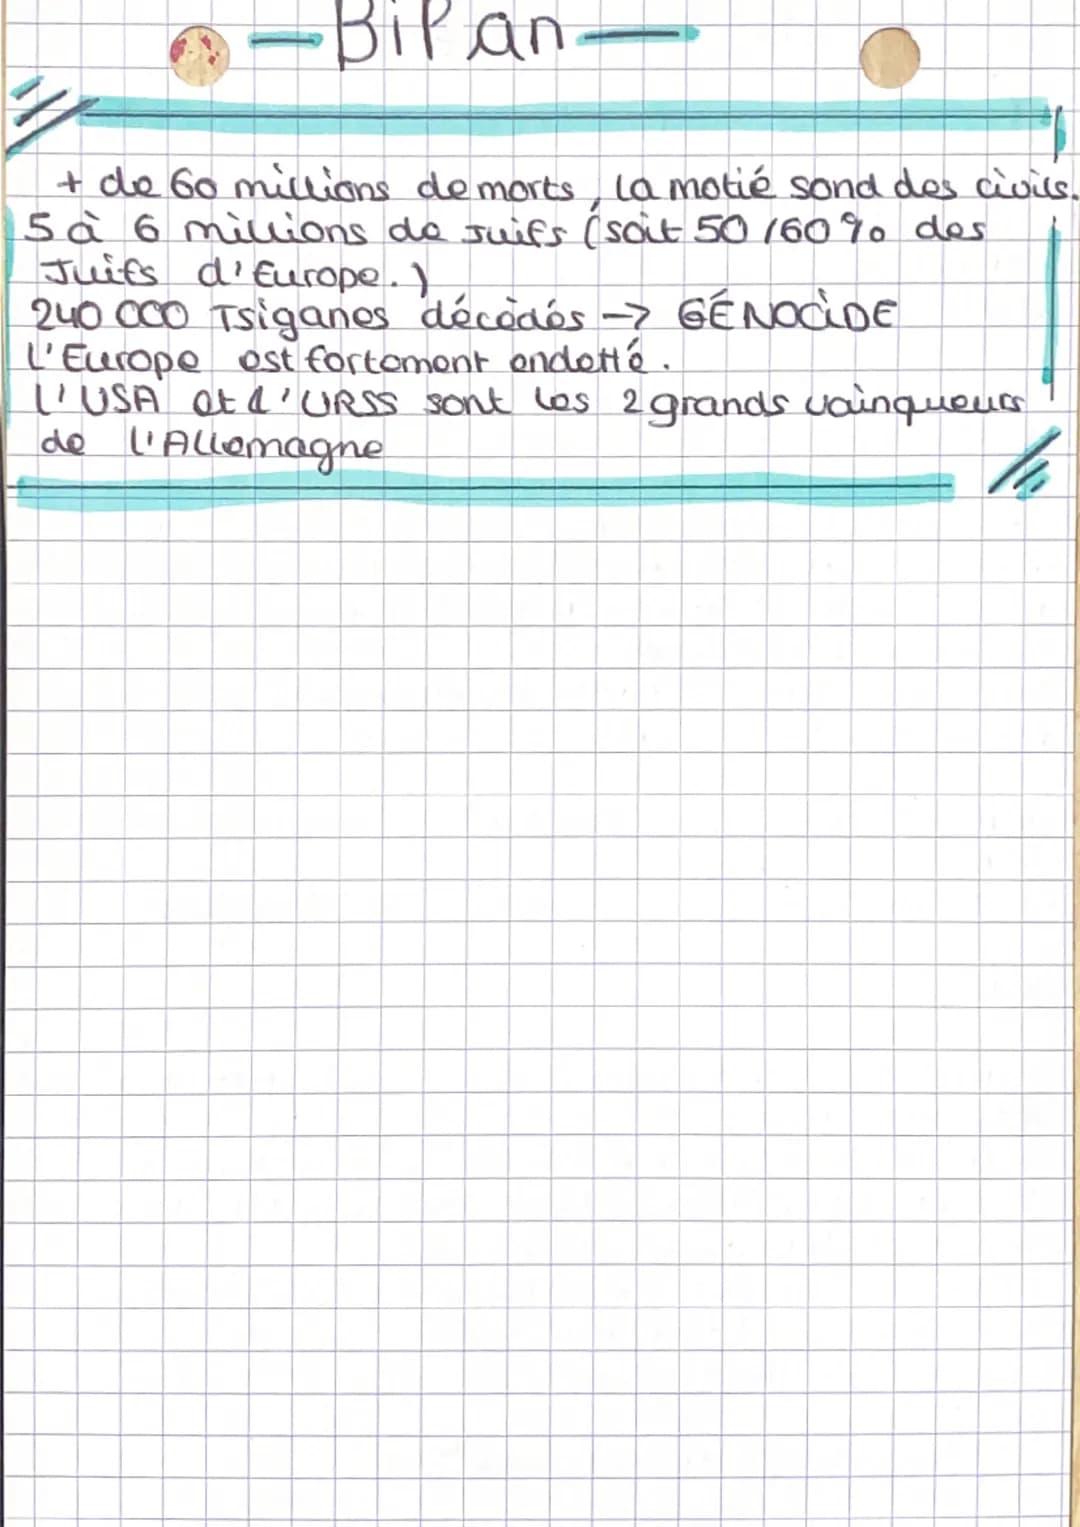 Bilan
+ de 60 millions de morts, la motié sond des civils.
5 à 6 millions de Juifs (soit 50/60% des
Juifs d'Europe.)
240 000 Tsiganes décédés → GÉNOCIDE
L'Europe est fortement endetté.
L'USA et l'URSS sont les 2 grands vainqueurs
de l'Allemagne